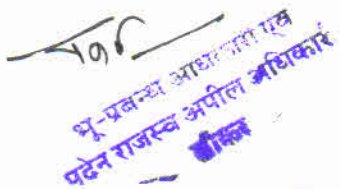 भू-प्रबन्ध आधिकारी एव
पदेन राजस्व अपील अधिकारी
सीकर